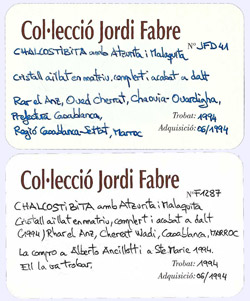 Col·lecció Jordi Fabre
Nº JFD41
CHALCOSTIBITA amb Atzurita i Malaquita
Cristall aïllat en matriu, complert i acabat a dalt
Rar el Anz, Oued Cherrat, Chaouia-Ouardigha,
Prefectura Casablanca,
Regió Casablanca-Settat, Marroc
Trobat: 1994
Adquisició: 06/1994
Col·lecció Jordi Fabre
Nº F1287
CHALCOSTIBITA amb Atzurita i Malaquita
Cristall aïllat en matriu, complert i acabat a dalt
(1994) Rhar el Anz, Cherrat Wadi, Casablanca, MARROC
La compro a Alberto Ancillotti a Ste Marie 1994.
Ell la va trobar.
Trobat: 1994
Adquisició: 06/1994